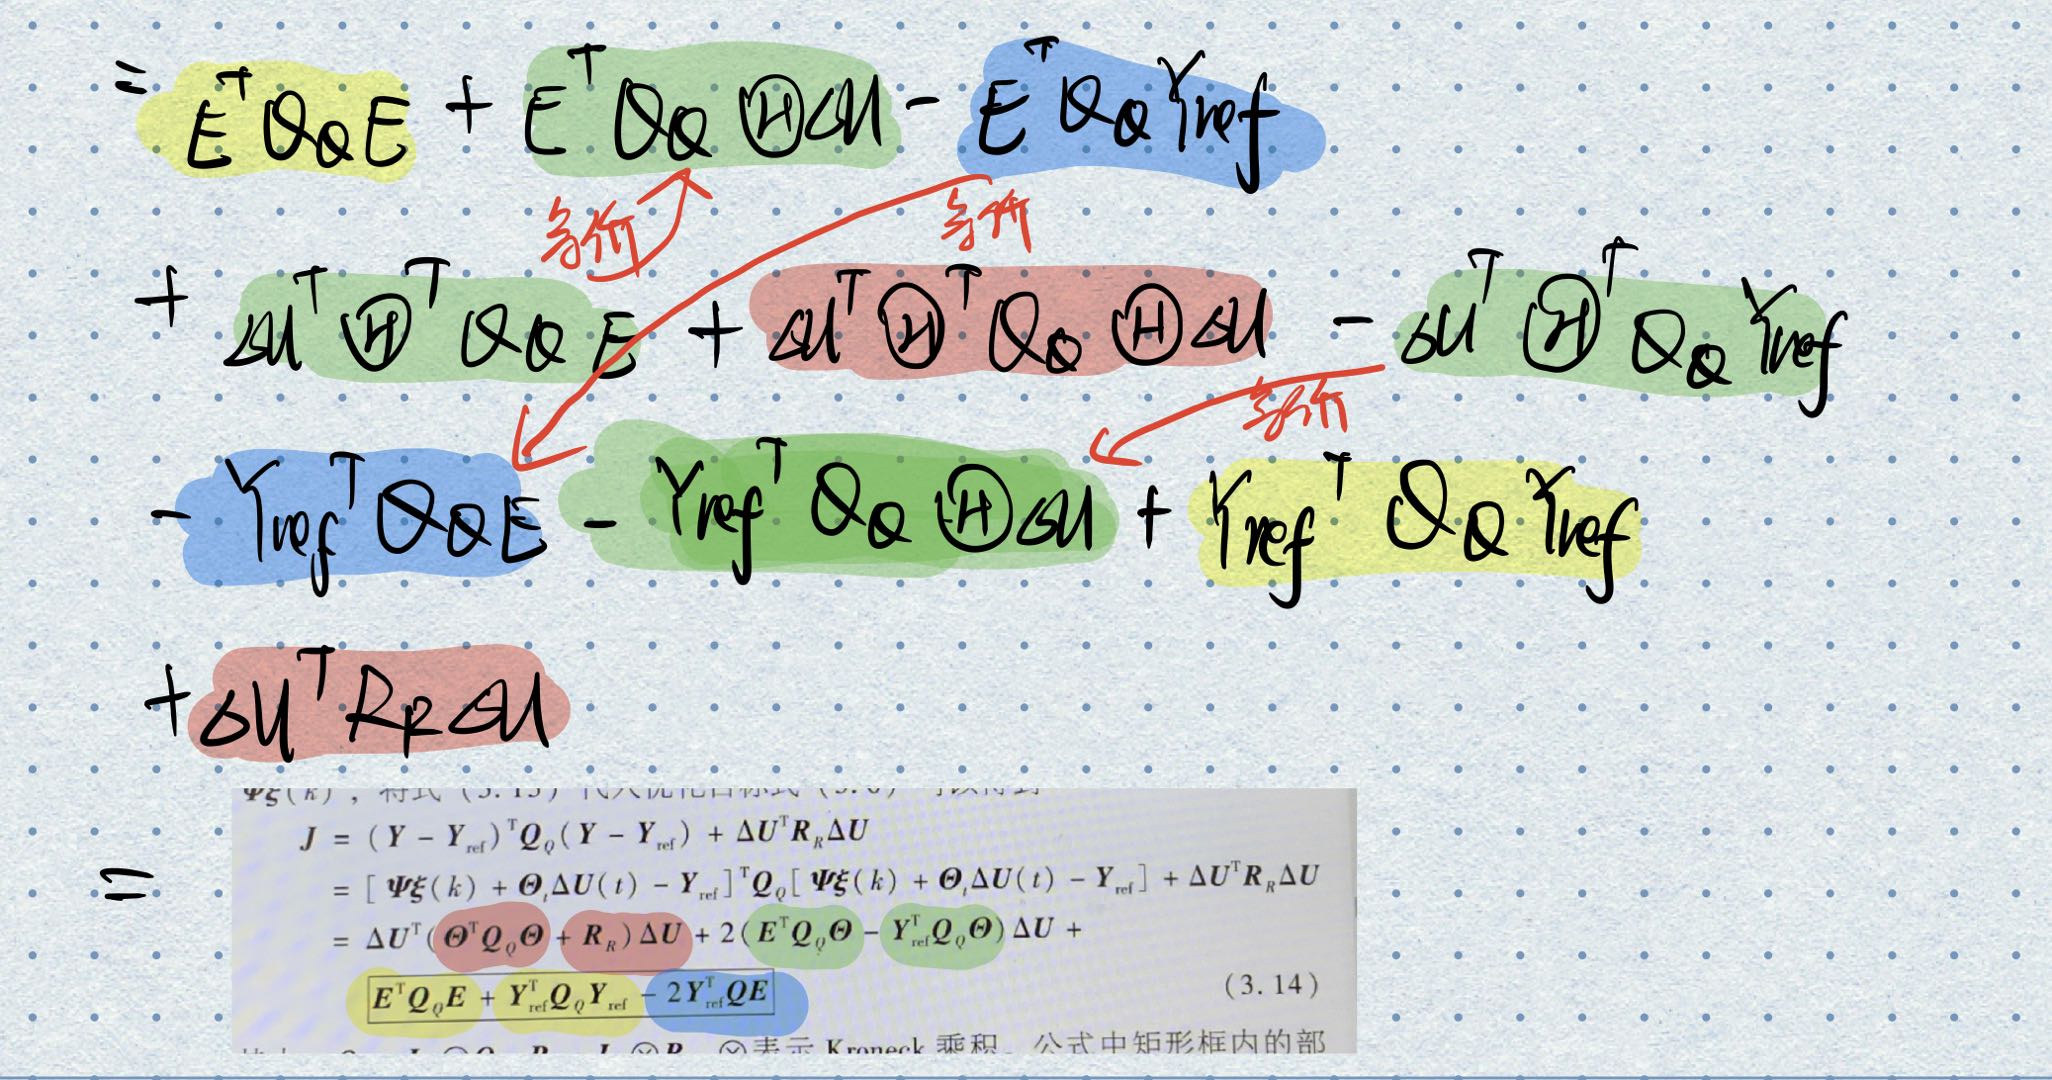 = EᵀQ_QE + EᵀQ_QΘΔU - EᵀQ_QYref
等价 等价
+ ΔUᵀΘᵀQ_QE + ΔUᵀΘᵀQ_QΘΔU - ΔUᵀΘᵀQ_QYref
等价
- YrefᵀQ_QE - YrefᵀQ_QΘΔU + YrefᵀQ_QYref
+ ΔUᵀR_RΔU
Ψξ(k), 将式 (3.13) 代入优化目标式 (3.6) 可以得到
J = (Y - Y_ref)ᵀQ_Q(Y - Y_ref) + ΔUᵀR_RΔU
=
= [Ψξ(k) + Θ_tΔU(t) - Y_ref]ᵀQ_Q[Ψξ(k) + Θ_tΔU(t) - Y_ref] + ΔUᵀR_RΔU
= ΔUᵀ(ΘᵀQ_QΘ + R_R)ΔU + 2(EᵀQ_QΘ - Y_refᵀQ_QΘ)ΔU +
EᵀQ_QE + Y_refᵀQ_QY_ref - 2Y_refᵀQE (3.14)
⊗表示 Kroneck 乘积。公式中矩形框内的部